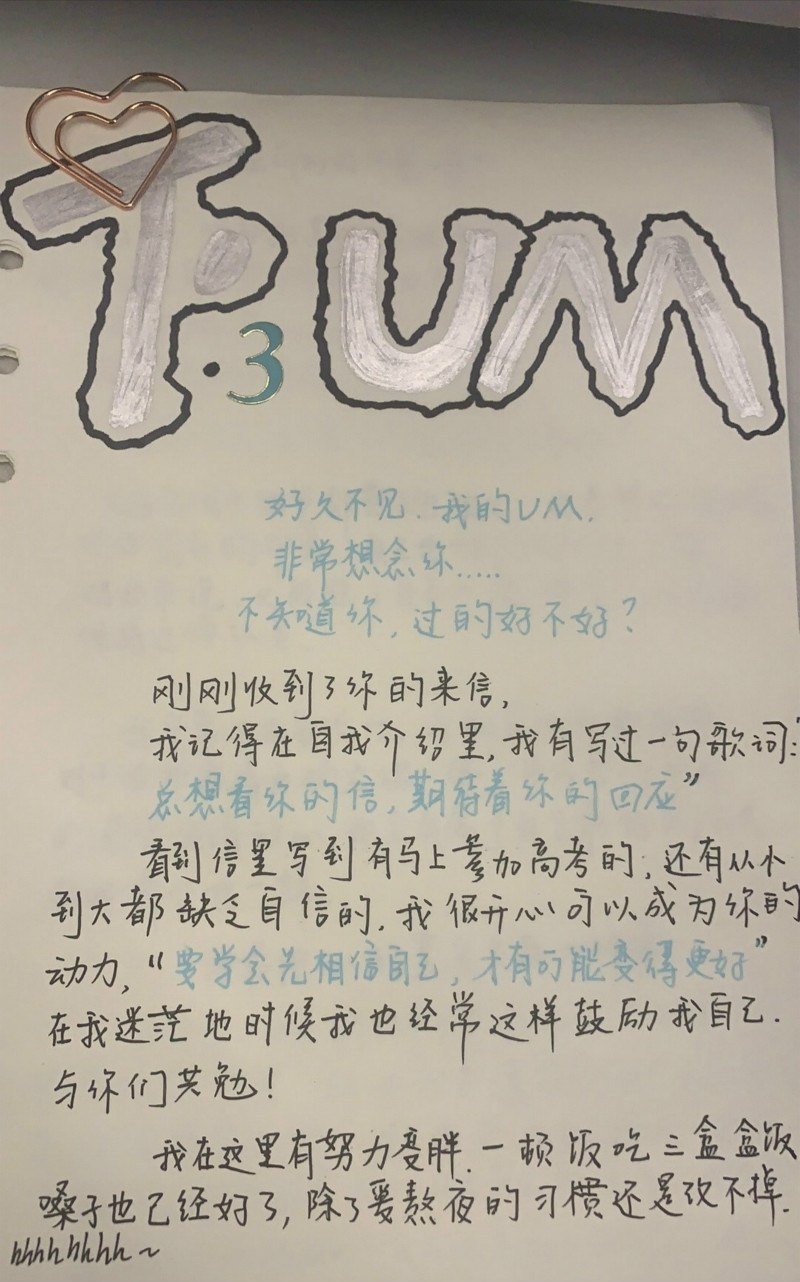 To.UM
.3
好久不见.我的UM.
非常想念你.....
不知道你,过的好不好?
刚刚收到了你的来信,
我记得在自我介绍里,我有写过一句歌词:"
总想看你的信,期待着你的回应"
看到信里写到有马上参加高考的,还有从小
到大都缺乏自信的,我很开心可以成为你的
动力,"要学会先相信自己,才有可能变得更好"
在我迷茫地时候我也经常这样鼓励我自己.
与你们共勉!
我在这里有努力变胖.一顿饭吃三盒盒饭
嗓子也已经好了,除了爱熬夜的习惯还是改不掉.
hhhhhhhh~